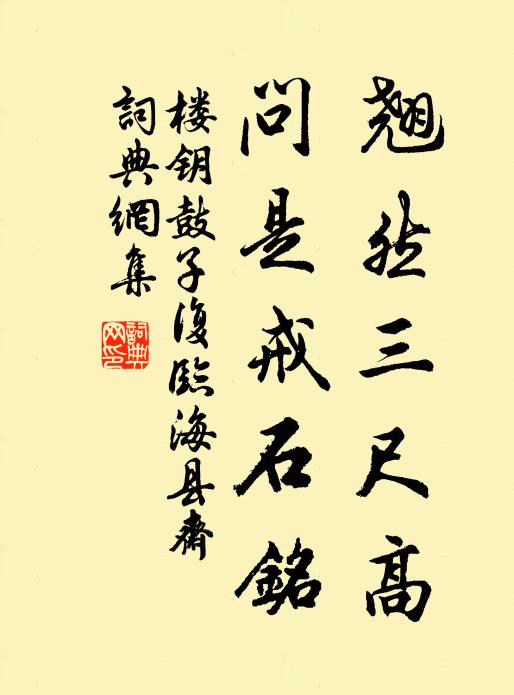 翘然三尺高
问是戒石銘
楼钥鼓子復臨海县齋
詞典網集
詞典网印